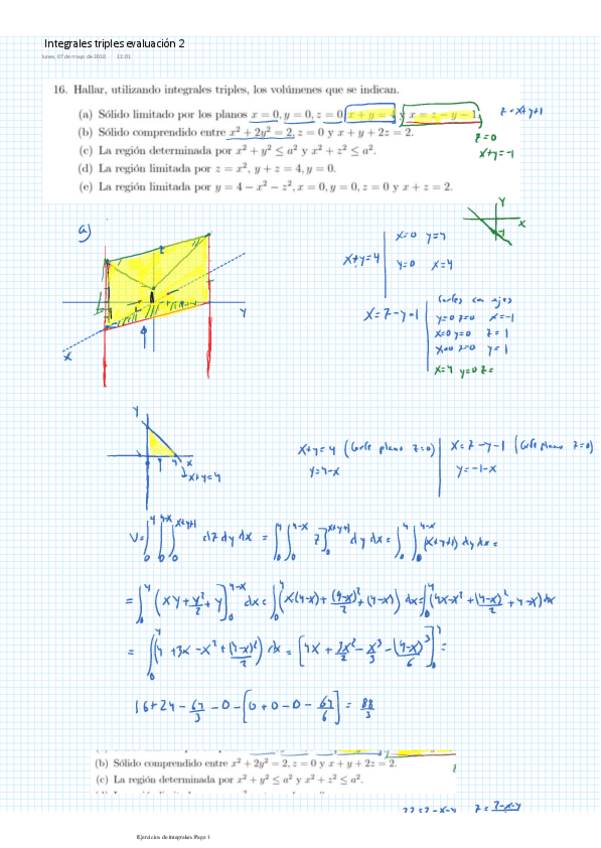 Integrales triples evaluación 2
lunes, 07 de mayo de 2018 12:01
16. Hallar, utilizando integrales triples, los volúmenes que se indican.
(a) Sólido limitado por los planos x = 0, y = 0, z = 0, x + y = 4 y x = z − y − 1. z = x+y+1
(b) Sólido comprendido entre x² + 2y² = 2, z = 0 y x + y + 2z = 2. z=0
(c) La región determinada por x² + y² ≤ a² y x² + z² ≤ a². x+y=-1
(d) La región limitada por z = x², y + z = 4, y = 0.
(e) La región limitada por y = 4 − x² − z², x = 0, y = 0, z = 0 y x + z = 2.
Y
X
a)
z
Y
X
x+y=4 | x=0 y=4
y=0 x=4
x=z-y-1 | Cortes con ejes
y=0 z=0 x=-1
x=0 y=0 z=1
x=0 z=0 y=1
x=4 y=0 z=
Y
4 x
x+y=4
x+y=4 (Corte plano z=0) | x=z-y-1 (Corte plano z=0)
y=4-x | y=-1-x
V=∫₀⁴∫₀^(4-x)∫₀^(x+y+1) dz dy dx = ∫₀⁴∫₀^(4-x) z]₀^(x+y+1) dy dx = ∫₀⁴∫₀^(4-x) (x+y+1) dy dx =
= ∫₀⁴ (xy + y²/2 + y)₀^(4-x) dx = ∫₀⁴ (x(4-x) + (4-x)²/2 + (4-x)) dx = ∫₀⁴ (4x-x² + (4-x)²/2 + 4-x) dx
= ∫₀⁴ (4 + 3x - x² + (4-x)²/2) dx = [4x + 3x²/2 - x³/3 - (4-x)³/6]₀⁴ =
16 + 24 - 64/3 - 0 - [0 + 0 - 0 - 64/6] = 88/3
(b) Sólido comprendido entre x² + 2y² = 2, z = 0 y x + y + 2z = 2.
(c) La región determinada por x² + y² ≤ a² y x² + z² ≤ a².
2z=2-x-y z=2-x-y
Ejercicios de integrales Page 1